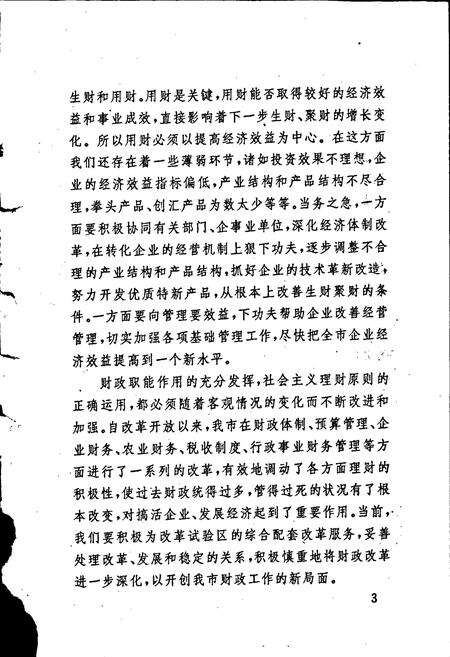 生财和用财。用财是关键，用财能否取得较好的经济效
益和事业成效，直接影响着下一步生财、聚财的增长变
化。所以用财必须以提高经济效益为中心。在这方面
我们还存在着一些薄弱环节，诸如投资效果不理想，企
业的经济效益指标偏低，产业结构和产品结构不尽合
理，拳头产品、创汇产品为数太少等等。当务之急，一方
面要积极协同有关部门、企事业单位，深化经济体制改
革，在转化企业的经营机制上狠下功夫，逐步调整不合
理的产业结构和产品结构，抓好企业的技术革新改造，
努力开发优质特新产品，从根本上改善生财聚财的条
件。一方面要向管理要效益，下功夫帮助企业改善经营
管理，切实加强各项基础管理工作，尽快把全市企业经
济效益提高到一个新水平。
财政职能作用的充分发挥，社会主义理财原则的
正确运用，都必须随着客观情况的变化而不断改进和
加强。自改革开放以来，我市在财政体制、预算管理、企
业财务、农业财务、税收制度、行政事业财务管理等方
面进行了一系列的改革，有效地调动了各方面理财的
积极性，使过去财政统得过多，管得过死的状况有了根
本改变，对搞活企业、发展经济起到了重要作用。当前，
我们要积极为改革试验区的综合配套改革服务，妥善
处理改革、发展和稳定的关系，积极慎重地将财政改革
进一步深化，以开创我市财政工作的新局面。
3